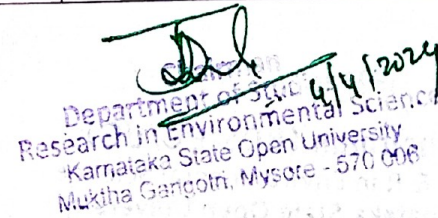 Chairman
4/4/2024
Department of Studies
Research in Environmental Science
Karnataka State Open University
Muktha Gangotri, Mysore - 570 006